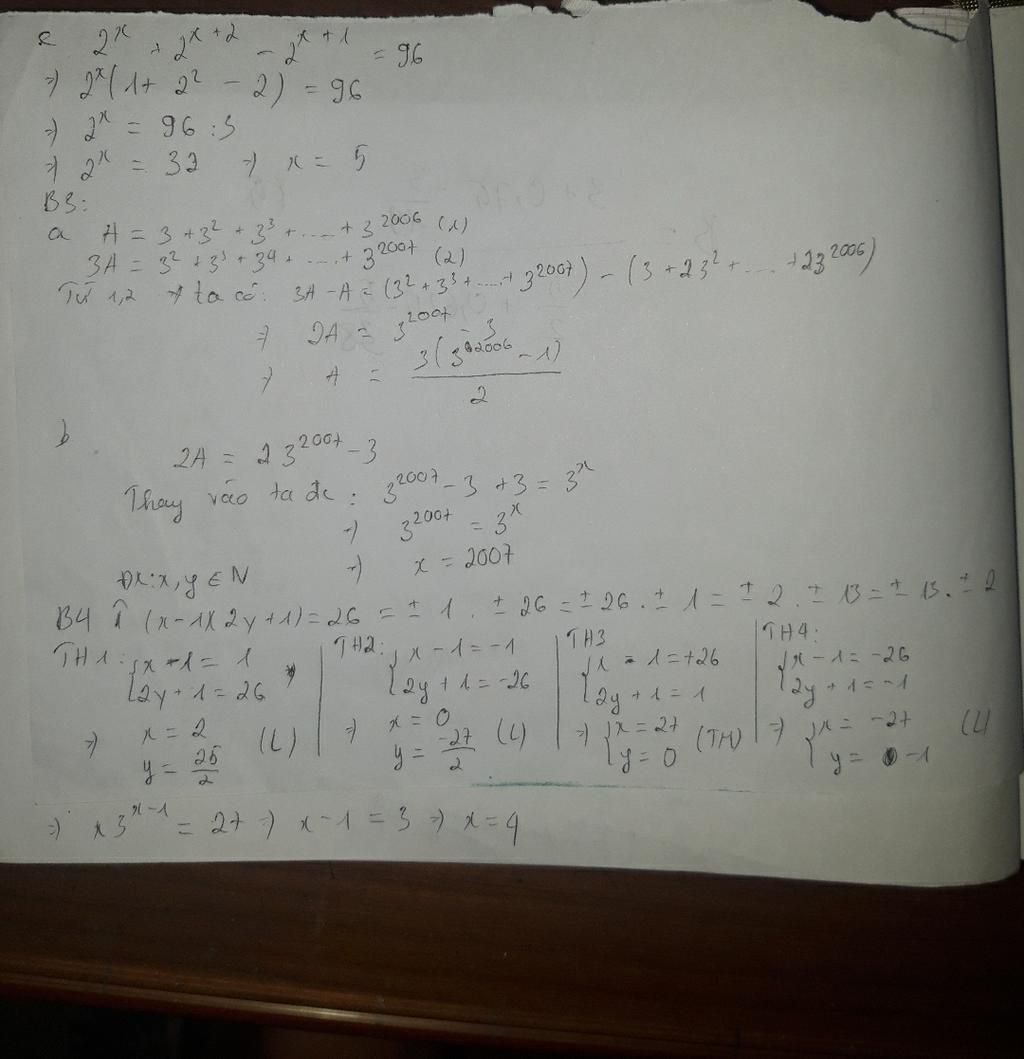 c 2^x + 2^{x+2} - 2^{x+1} = 96
=) 2^x(1 + 2^2 - 2) = 96
=) 2^x = 96 : 3
=) 2^x = 32 =) x = 5
B3:
a A = 3 + 3^2 + 3^3 + .... + 3^{2006} (1)
3A = 3^2 + 3^3 + 3^4 + .... + 3^{2007} (2)
Từ 1,2 ta có: 3A - A = (3^2 + 3^3 + .... + 3^{2007}) - (3 + 23^2 + .... + 23^{2006})
=) 2A = 3^{2007} - 3
=) A = \frac{3(3^{2006} - 1)}{2}
b
2A = 23^{2007} - 3
Thay vào ta đc : 3^{2007} - 3 + 3 = 3^x
=) 3^{2007} = 3^x
=) x = 2007
ĐK: x, y ∈ N
B4 (x-1)(2y+1) = 26 = ± 1 . ± 26 = ± 26 . ± 1 = ± 2 . ± 13 = ± 13 . ± 2
TH1: { x - 1 = 1
2y + 1 = 26
=) x = 2
y = \frac{25}{2} (L)
TH2: { x - 1 = -1
2y + 1 = -26
=) x = 0
y = \frac{-27}{2} (L)
TH3
{ x - 1 = +26
2y + 1 = 1
=) { x = 27
y = 0 (TM)
TH4:
{ x - 1 = -26
2y + 1 = -1
=) { x = -27
y = -1 (L)
=) x3^{x-1} = 27 =) x - 1 = 3 =) x = 4